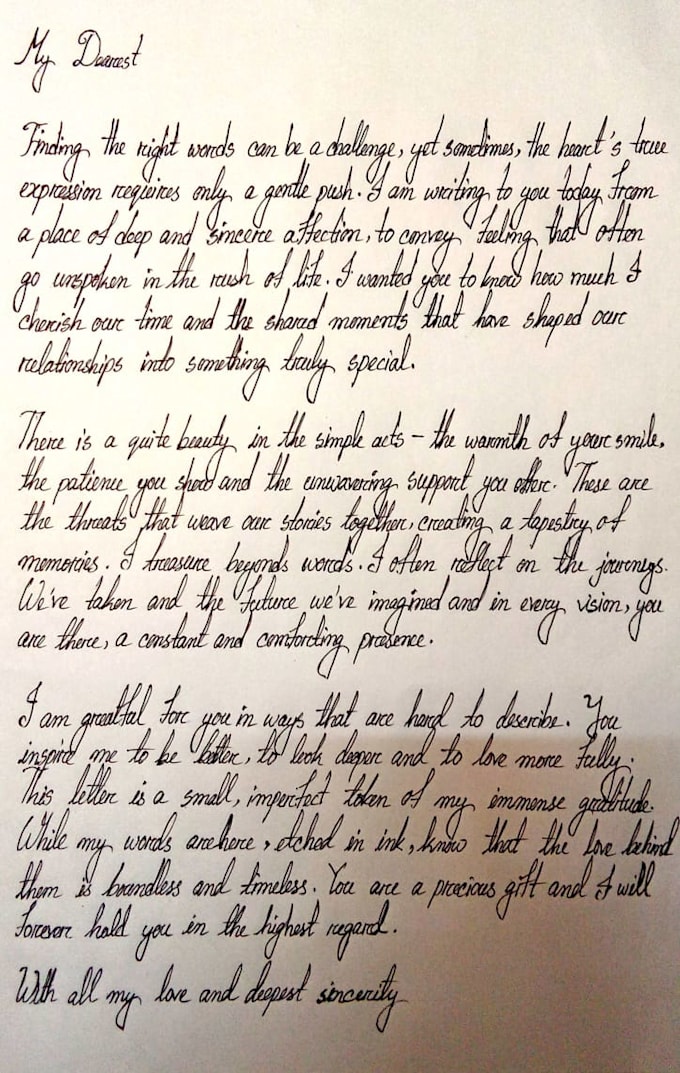 My Dearest
Finding the right words can be a challenge, yet sometimes, the heart's true
expression requires only a gentle push. I am writing to you today from
a place of deep and sincere affection, to convey feeling that often
go unspoken in the rush of life. I wanted you to know how much I
cherish our time and the shared moments that have shaped our
relationships into something truly special.
There is a quite beauty in the simple acts – the warmth of your smile,
the patience you show and the unwavering support you offer. These are
the threats that weave our stories together, creating a tapestry of
memories. I treasure beyonds words. I often reflect on the journeys.
We've taken and the future we've imagined and in every vision, you
are there, a constant and comforting presence.
I am greatful for you in ways that are hard to describe. You
inspire me to be better, to look deeper and to love more fully.
This letter is a small, imperfect token of my immense gratitude.
While my words are here, etched in ink, know that the love behind
them is boundless and timeless. You are a precious gift and I will
forever hold you in the highest regard.
With all my love and deepest sincerity